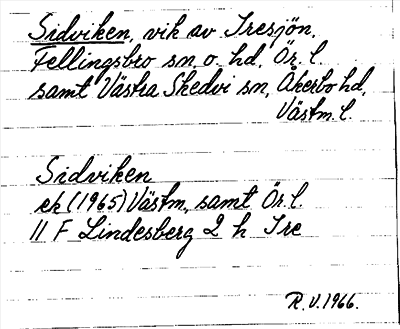 Sidviken, vik av Tresjön,
Fellingsbro sn, o. hd, Ör. l.
samt Västra Skedvi sn, Åkerbo hd,
Västm. l.
Sidviken
ek (1965) Västm, samt Ör. l.
11 F Lindesberg 2 h Tre
R.V. 1966.